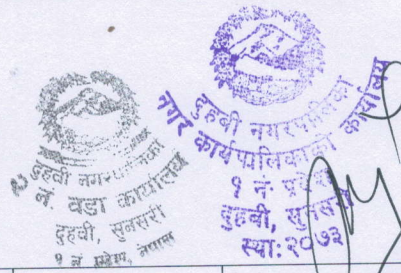 दुहवी नगरपालिका
नं. वडा कार्यालय
दुहवी, सुनसरी
१ नं प्रदेश, नेपाल
दुहवी नगरपालिका
नगर कार्यपालिकाको कार्यालय
१ नं. प्रदेश
दुहवी, सुनसरी
स्था: २०७३